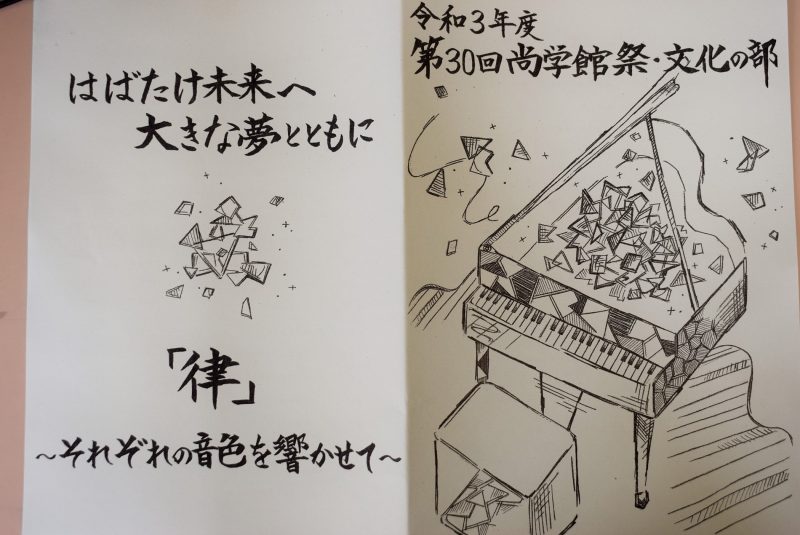 はばたけ未来へ
大きな夢とともに
「律」
～それぞれの音色を響かせて～
令和3年度
第30回尚学館祭・文化の部